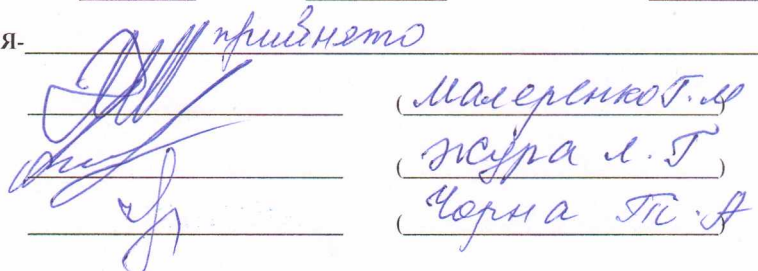 Я- прийнято
( Малеренко Г.М )
( Жура Л.Г )
( Чорна Т.А )